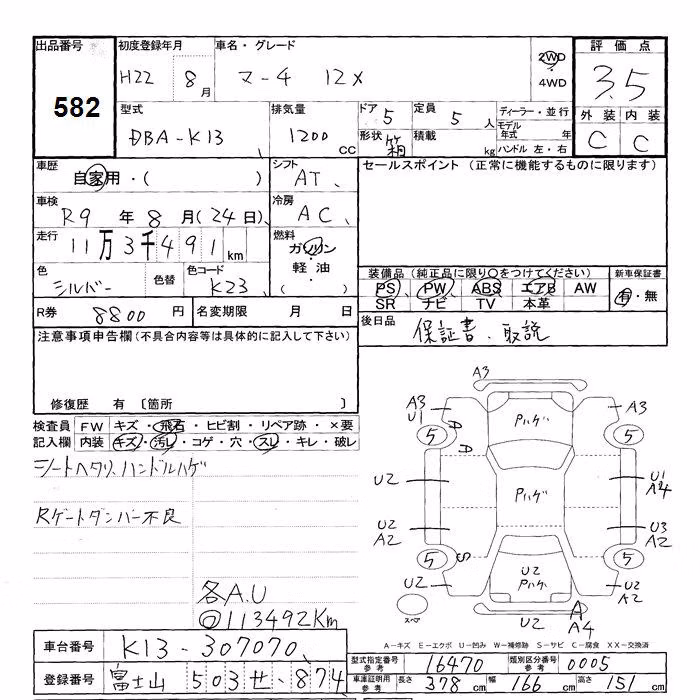 出品番号 初度登録年月 車名・グレード 2WD 評価点
582 H22 8月 マーチ 12X 4WD 3.5
型式 排気量 ドア 5 定員 5人 ディーラー・並行 外装 内装
DBA-K13 1200 CC 形状 箱 積載 kg モデル年式 年 C C
ハンドル 左・右
車歴 シフト セールスポイント (正常に機能するものに限ります)
自家用・( ) AT
車検 冷房
R9年8月(24日) AC
走行 燃料
11万3千491km ガソリン・軽油・( )
色 色替 色コード 装備品(純正品に限り〇をつけてください) 新車保証書
シルバー K23 PS PW ABS エアB AW 有・無
SR ナビ TV 本革
R券 8800円 名変期限 月 日 後日品
保証書、取説
注意事項申告欄(不具合内容等は具体的に記入して下さい)
修復歴 有 〔箇所 〕
検査員 FW キズ・飛石・ヒビ割・リペア跡・×要
記入欄 内装 キズ・汚レ・コゲ・穴・スレ・キレ・破レ
シートヘタリ、ハンドルハゲ
Rゲートダンパー不良
各A.U
◎113492Km
A3
A3 U1 A A Pハゲ A3
5 5
U2 Pハゲ U1 A4
U2 A2 U3 A2
5 S 5
U2 U2 Pハゲ U2 A2
スペア U2 A A4
A-キズ E-エクボ U-凹み W-補修跡 S-サビ C-腐食 XX-交換済
車台番号 K13-307070
登録番号 富士山 503 せ・874
型式指定番号 参考 16470 類別区分番号 参考 0005
車庫証明用 参考 長さ 378cm 幅 166cm 高さ 151cm